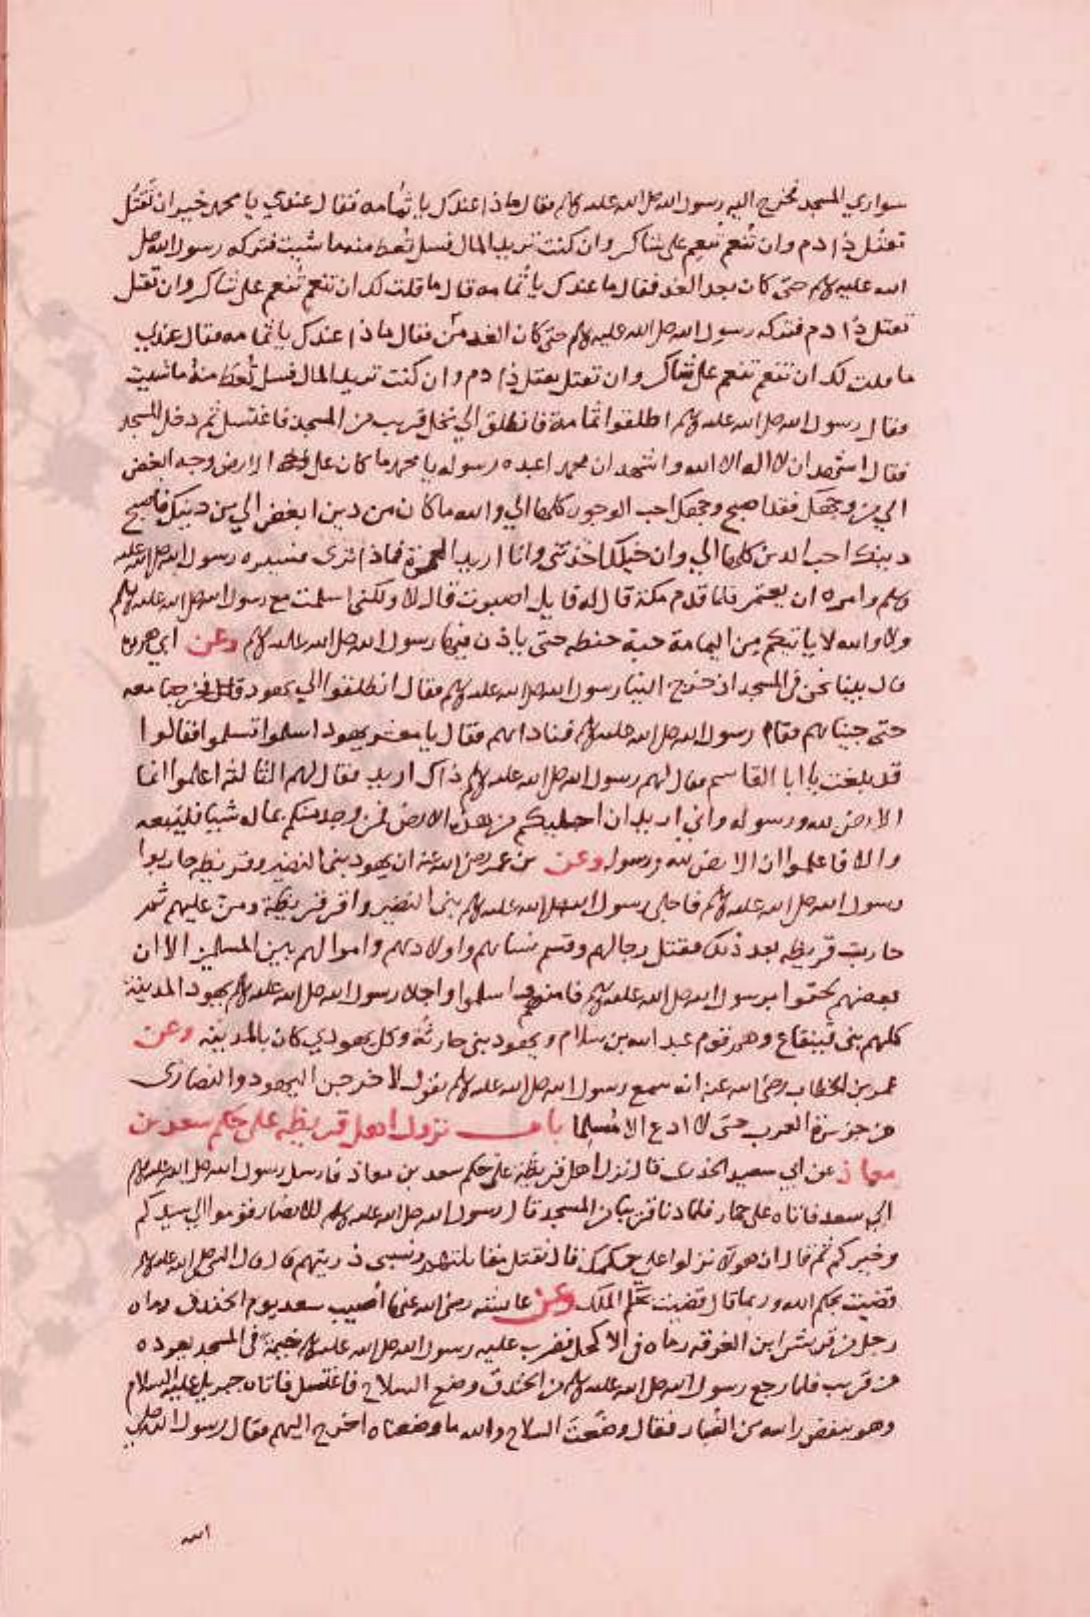 سواري المسجد فخرج اليه رسول الله صلى الله عليه وسلم فقال ماذا عندك يا ثمامه فقال عندي يا محمد خير ان تقتل
تقتل ذا دم وان تنعم تنعم على شاكر وان كنت تريد المال فسل تعط منه ما شيت فتركه رسول الله صلى
الله عليه وسلم حتى كان بعد الغد فقال ما عندك يا ثمامه قال ما قلت لك ان تنعم تنعم على شاكر وان تقتل
تقتل ذا دم فتركه رسول الله صلى الله عليه وسلم حتى كان الغد من فقال ماذا عندك يا ثمامه فقال عندي
ما قلت لك ان تنعم تنعم على شاكر وان تقتل تقتل ذا دم وان كنت تريد المال فسل تعط منه ما شيت
فقال رسول الله صلى الله عليه وسلم اطلقوا ثمامة فانطلق الي نخل قريب من المسجد فاغتسل ثم دخل المسجد
فقال اشهد ان لا اله الا الله واشهد ان محمدا عبده رسوله يا محمد ما كان على الارض وجه ابغض
الي من وجهك فقد اصبح وجهك احب الوجوه كلها الي والله ما كان من دين ابغض الي من دينك فاصبح
دينك احب الدين كلها الي وان خيلك اخذتني وانا اريد العمرة فماذا ترى فبشره رسول الله صلى الله عليه
وسلم وامره ان يعتمر فلما قدم مكة قال له قايل اصبوت قال لا ولكني اسلمت مع رسول الله صلى الله عليه وسلم
ولا والله لا ياتيكم من اليمامة حبة حنطه حتى ياذن فيها رسول الله صلى الله عليه وسلم وعن ابي هريره
قال بينا نحن في المسجد اذ خرج الينا رسول الله صلى الله عليه وسلم فقال انطلقوا الي يهود فخرجنا معه
حتى جيناهم فقام رسول الله صلى الله عليه وسلم فناداهم فقال يا معشر يهود اسلموا تسلموا فقالوا
قد بلغت يا ابا القاسم فقال لهم رسول الله صلى الله عليه وسلم ذاك اريد فقال لهم الثالثة اعلموا انما
الارض لله ورسوله واني اريد ان اجليكم من هذه الارض فمن وجد منكم بماله شيا فليبعه
والا فاعلموا ان الارض لله ورسوله وعن بن عمر رضي الله عنه ان يهود بني النضير وقريظه حاربوا
رسول الله صلى الله عليه وسلم فاجلى رسول الله صلى الله عليه وسلم بني النضير واقر قريظة ومن عليهم ثم
حاربت قريظه بعد ذلك فقتل رجالهم وقسم نساهم واولادهم واموالهم بين المسلمين الا ان
بعضهم لحقوا برسول الله صلى الله عليه وسلم فامنهم واسلموا واجلا رسول الله صلى الله عليه وسلم يهود المدينة
كلهم بني قينقاع وهم قوم عبد الله بن سلام ويهود بني حارثة وكل يهودي كان بالمدينه وعن
عمر بن الخطاب رضي الله عنه انه سمع رسول الله صلى الله عليه وسلم يقول لاخرجن اليهود والنصارى
من جزيرة العرب حتى لا ادع الا مسلما باب نزول اهل قريظه على حكم سعد بن
معاذ عن ابي سعيد الخدري قال نزل اهل قريظة على حكم سعد بن معاذ فارسل رسول الله صلى الله عليه وسلم
الي سعد فاتاه على حمار فلما دنا قريبا من المسجد قال رسول الله صلى الله عليه وسلم للانصار قوموا الي سيدكم
وخيركم ثم قال ان هولا نزلوا على حكمك قال تقتل مقاتلتهم وتسبى ذريتهم قال قال النبي صلى الله عليه وسلم
قضيت بحكم الله وربما قال قضيت بحكم الملك وعن عايشه رضي الله عنها اصيب سعد يوم الخندق رماه
رجل من قريش ابن العرقه رماه في الاكحل فضرب عليه رسول الله صلى الله عليه وسلم خيمة في المسجد يعوده
من قريب فلما رجع رسول الله صلى الله عليه وسلم من الخندق وضع السلاح فاغتسل فاتاه جبريل عليه السلام
وهو ينفض راسه من الغبار فقال وضعت السلاح والله ما وضعناه اخرج اليهم فقال رسول الله صلى
الله